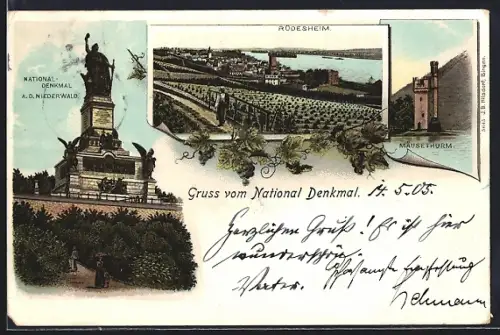 NATIONAL-
DENKMAL
A. D. NIEDERWALD.
RÜDESHEIM.
MÄUSETHURM.
Gruss vom National Denkmal.
14. 5. 05.
Herzlichen Gruß! Es ist hier
wunderschön.
Vater.
Lehmann